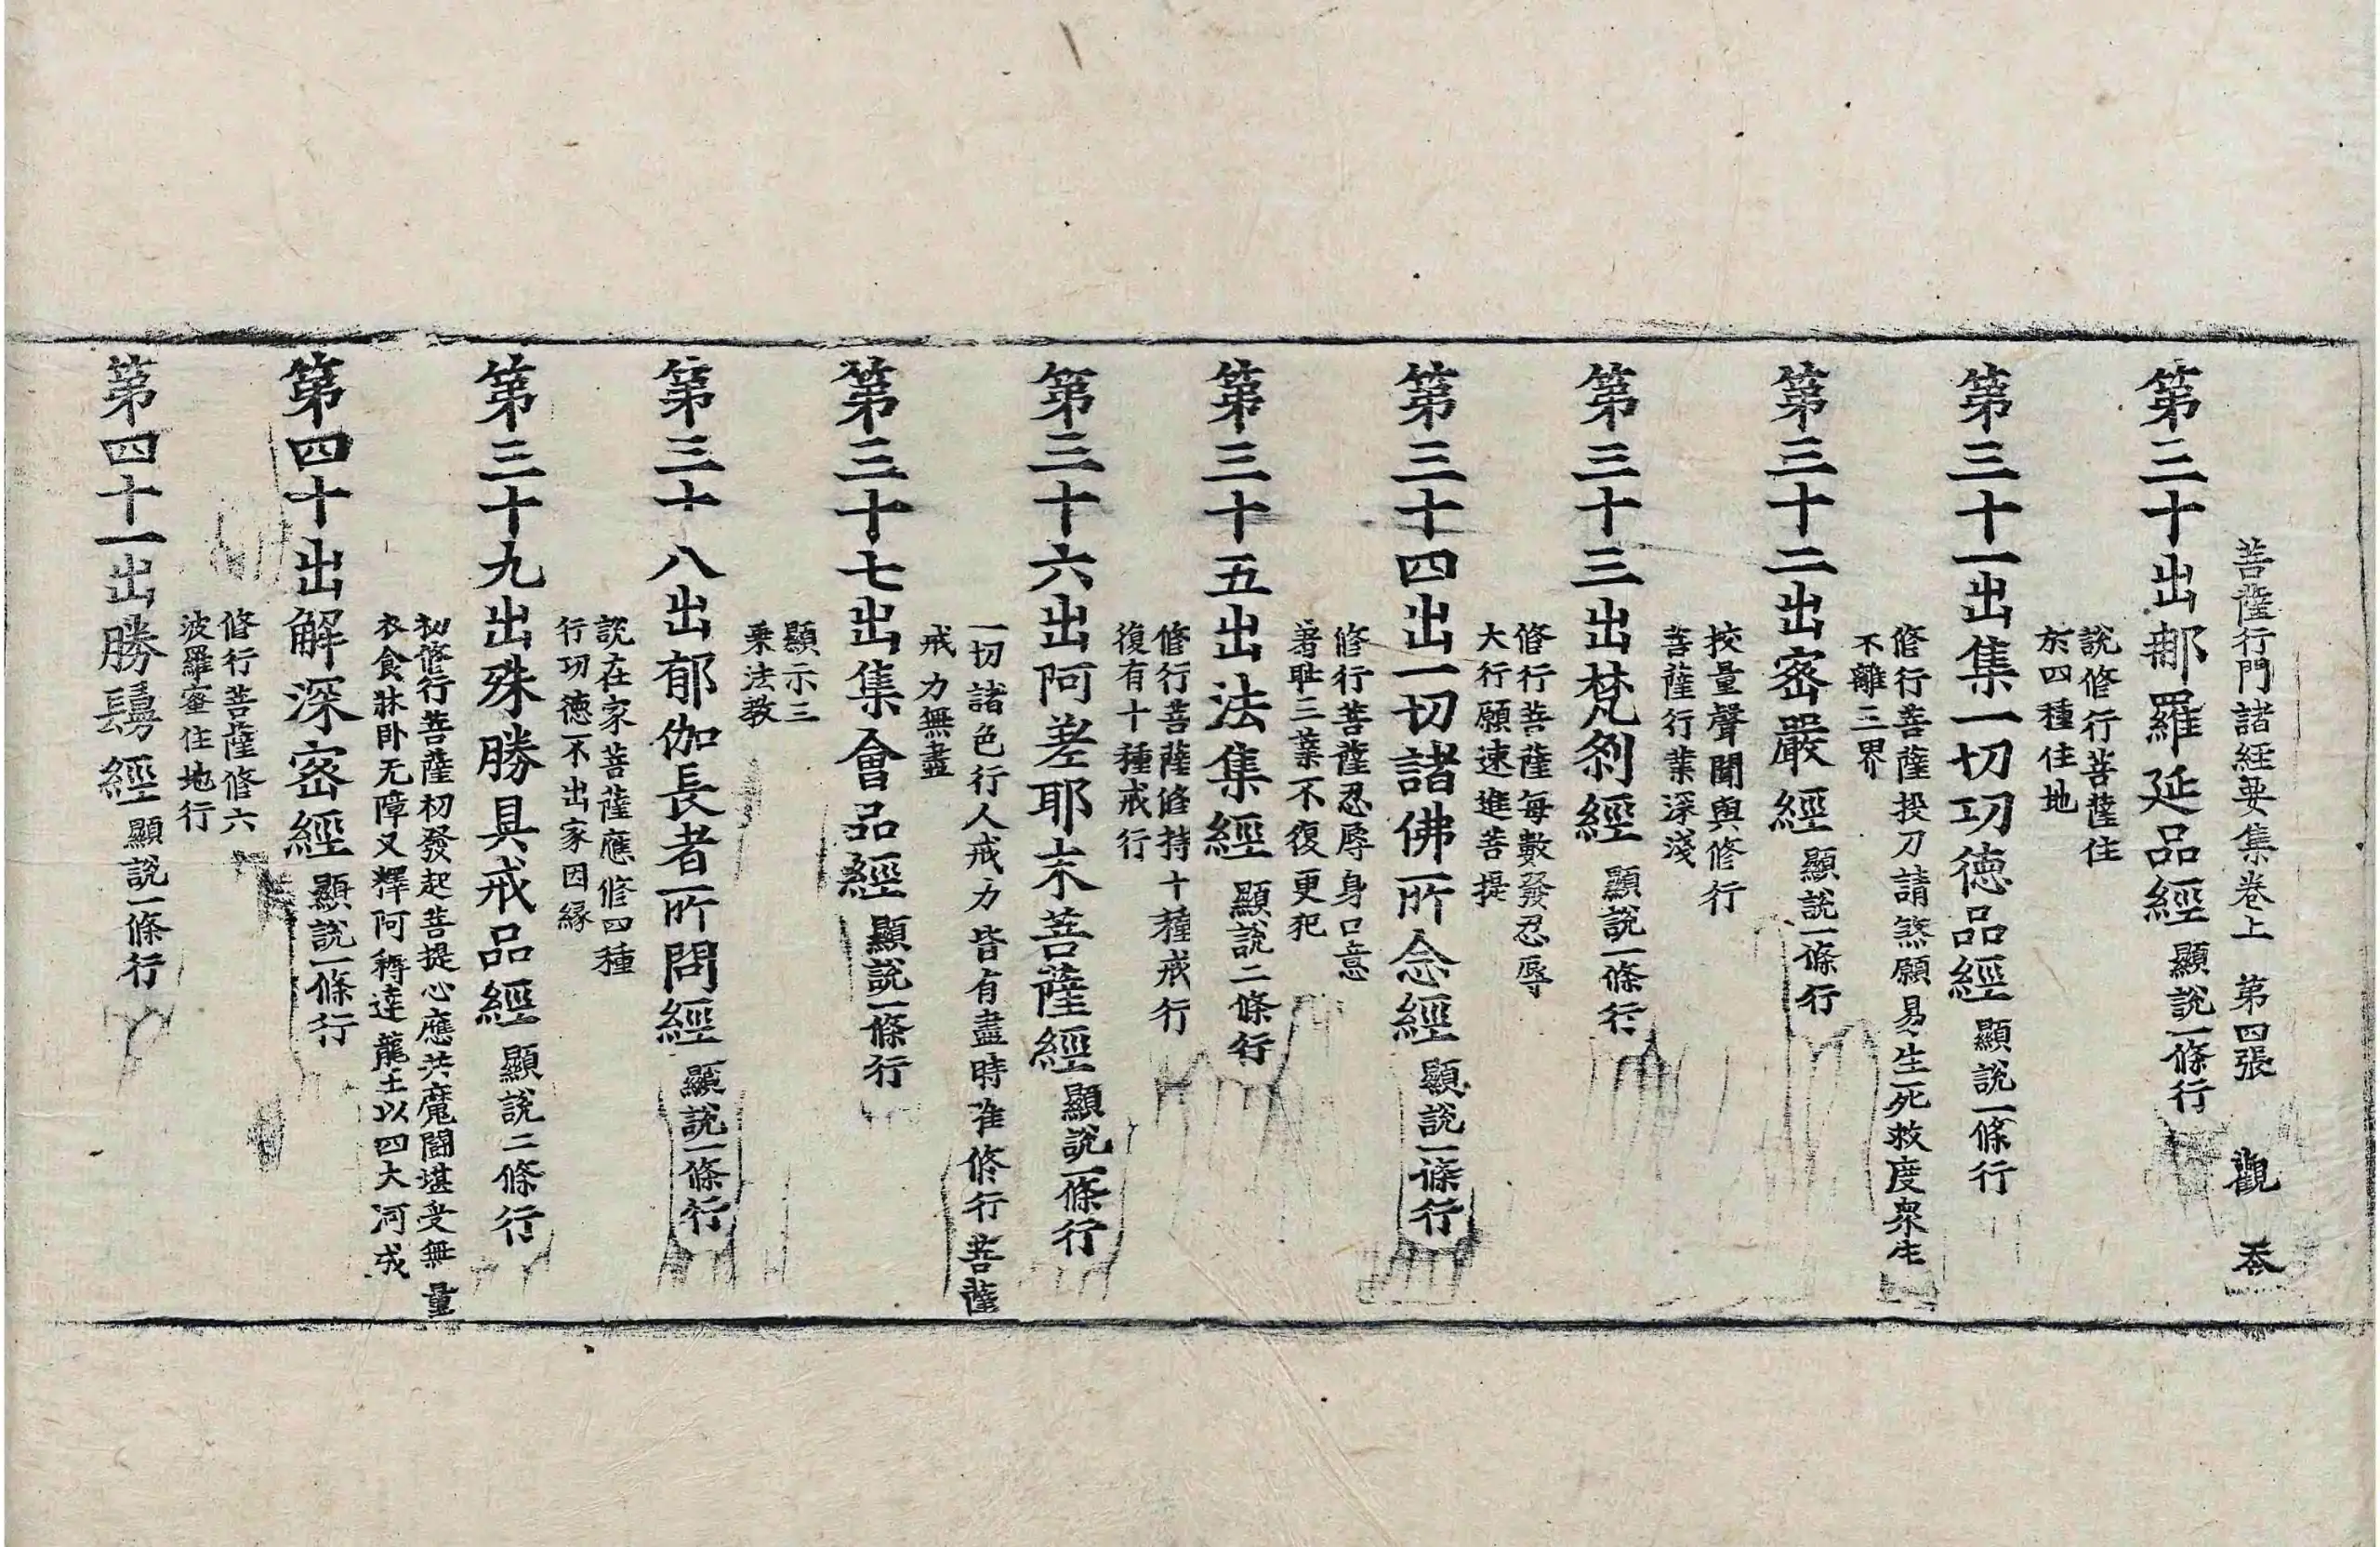 菩薩行門諸經要集卷上 第四張 觀 忝
第三十出那羅延品經 顯説一條行
説修行菩薩住
於四種住地
第三十一出集一切功德品經 顯説一條行
修行菩薩投刀請煞願易生死救度衆生
不離三界
第三十二出密嚴經 顯説一條行
挍量聲聞與修行
菩薩行業深淺
第三十三出梵刹經 顯説一條行
修行菩薩每數發忍辱
大行願速進菩提
第三十四出一切諸佛所念經 顯説一條行
修行菩薩忍辱身口意
著耻三業不復更犯
第三十五出法集經 顯説二條行
修行菩薩修持十種戒行
復有十種戒行
第三十六出阿差耶末菩薩經 顯説一條行
一切諸色行人戒力皆有盡時准修行菩薩
戒力無盡
第三十七出集會品經 顯説一條行
顯示三
乗法教
第三十八出郁伽長者所問經 顯説一條行
説在家菩薩應修四種
行功德不出家因縁
第三十九出殊勝具戒品經 顯説二條行
初修行菩薩初發起菩提心應共魔鬪堪受無量
衣食牀卧无障又釋阿耨達龍王以四大河戒
第四十出解深密經 顯説一條行
修行菩薩修六
波羅蜜住地行
第四十一出勝鬘經 顯説一條行